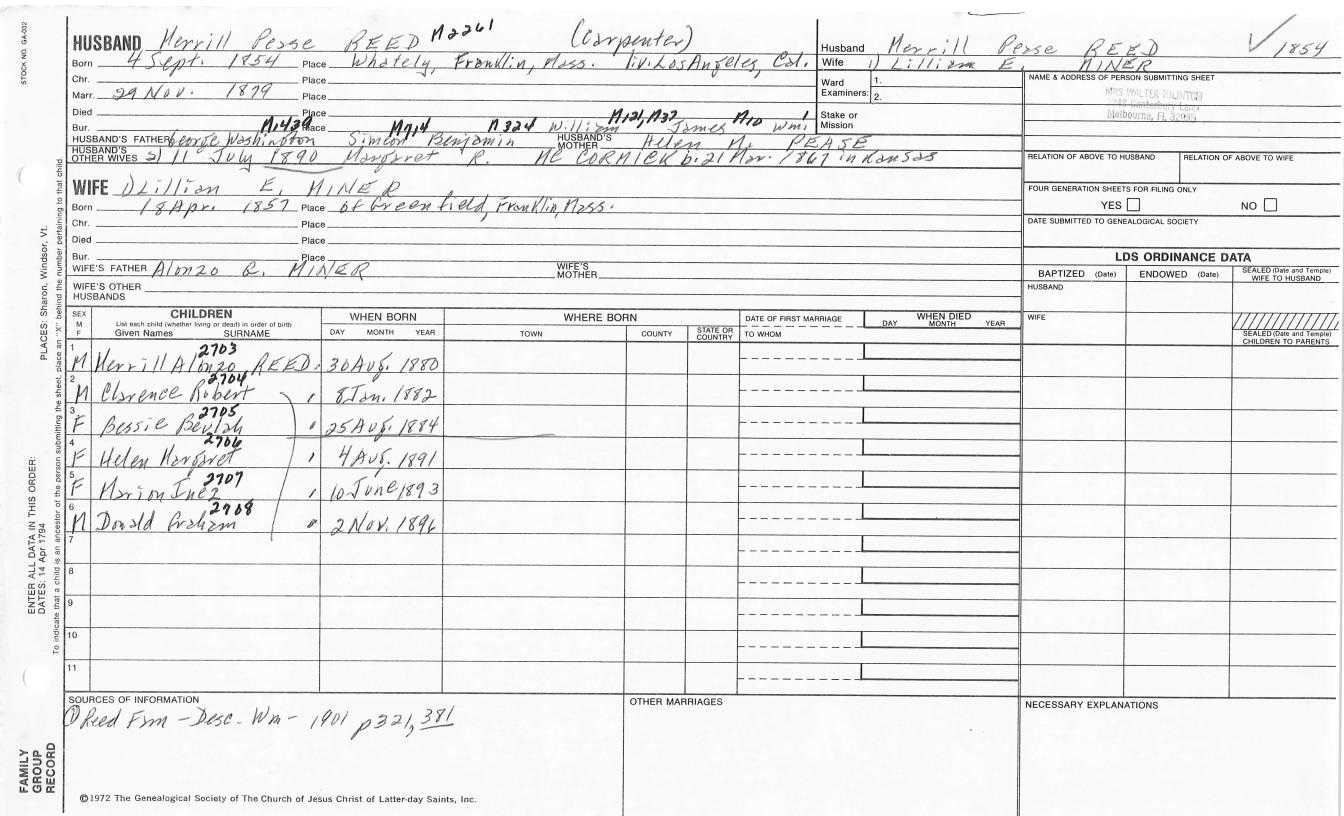 STOCK NO. GA-032
HUSBAND Merrill Pease REED M2261 (Carpenter)
Born 4 Sept. 1854 Place Whately, Franklin, Mass. liv. Los Angeles, Cal.
Chr. Place
Marr. 29 Nov. 1879 Place
Died Place
Bur. Place
M1439 M714 M324 William M121, M32 James M10 Wm1
HUSBAND'S FATHER George Washington Simeon Benjamin HUSBAND'S MOTHER Helen M. PEASE
HUSBAND'S OTHER WIVES 2) 11 July 1890 Margaret R. MC CORMICK b. 21 Mar. 1867 in Kansas
WIFE 1) Lillian E. MINER
Born 18 Apr. 1857 Place of Greenfield, Franklin, Mass.
Chr. Place
Died Place
Bur. Place
WIFE'S FATHER Alonzo R. MINER WIFE'S MOTHER
WIFE'S OTHER HUSBANDS
Husband Merrill Pease REED 1854
Wife 1) Lilliam E. MINER
Ward Examiners: 1. 2.
Stake or Mission
NAME & ADDRESS OF PERSON SUBMITTING SHEET
MRS WALTER
Melbourne, FL
RELATION OF ABOVE TO HUSBAND RELATION OF ABOVE TO WIFE
FOUR GENERATION SHEETS FOR FILING ONLY
YES NO
DATE SUBMITTED TO GENEALOGICAL SOCIETY
LDS ORDINANCE DATA
BAPTIZED (Date) ENDOWED (Date) SEALED (Date and Temple) WIFE TO HUSBAND
HUSBAND
WIFE
SEALED (Date and Temple) CHILDREN TO PARENTS
SEX M F
CHILDREN
List each child (whether living or dead) in order of birth
Given Names SURNAME
WHEN BORN
DAY MONTH YEAR
WHERE BORN
TOWN COUNTY STATE OR COUNTRY
DATE OF FIRST MARRIAGE
TO WHOM
WHEN DIED
DAY MONTH YEAR
1 M Merrill Alonzo REED 2703 30 Aug. 1880
2 M Clarence Robert 2704 " 8 Jan. 1882
3 F Bessie Beulah 2705 " 25 Aug. 1884
4 F Helen Margaret 2706 " 4 Aug. 1891
5 F Marion Inez 2707 " 10 June 1893
6 M Donald Graham 2708 " 2 Nov. 1896
7
8
9
10
11
SOURCES OF INFORMATION
① Reed Fam - Desc. Wm - 1901 p321, 381
OTHER MARRIAGES
NECESSARY EXPLANATIONS
©1972 The Genealogical Society of The Church of Jesus Christ of Latter-day Saints, Inc.
FAMILY GROUP RECORD
ENTER ALL DATA IN THIS ORDER:
DATES: 14 Apr 1794
PLACES: Sharon, Windsor, Vt.
To indicate that a child is an ancestor of the person submitting the sheet, place an "X" behind the number pertaining to that child.